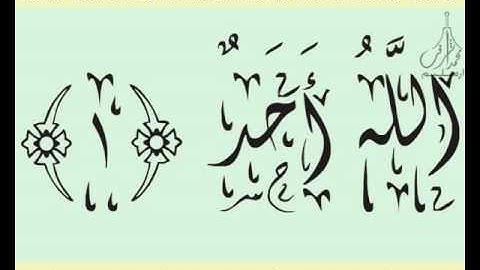 اللَّهُ أَحَدٌ ﴿١﴾